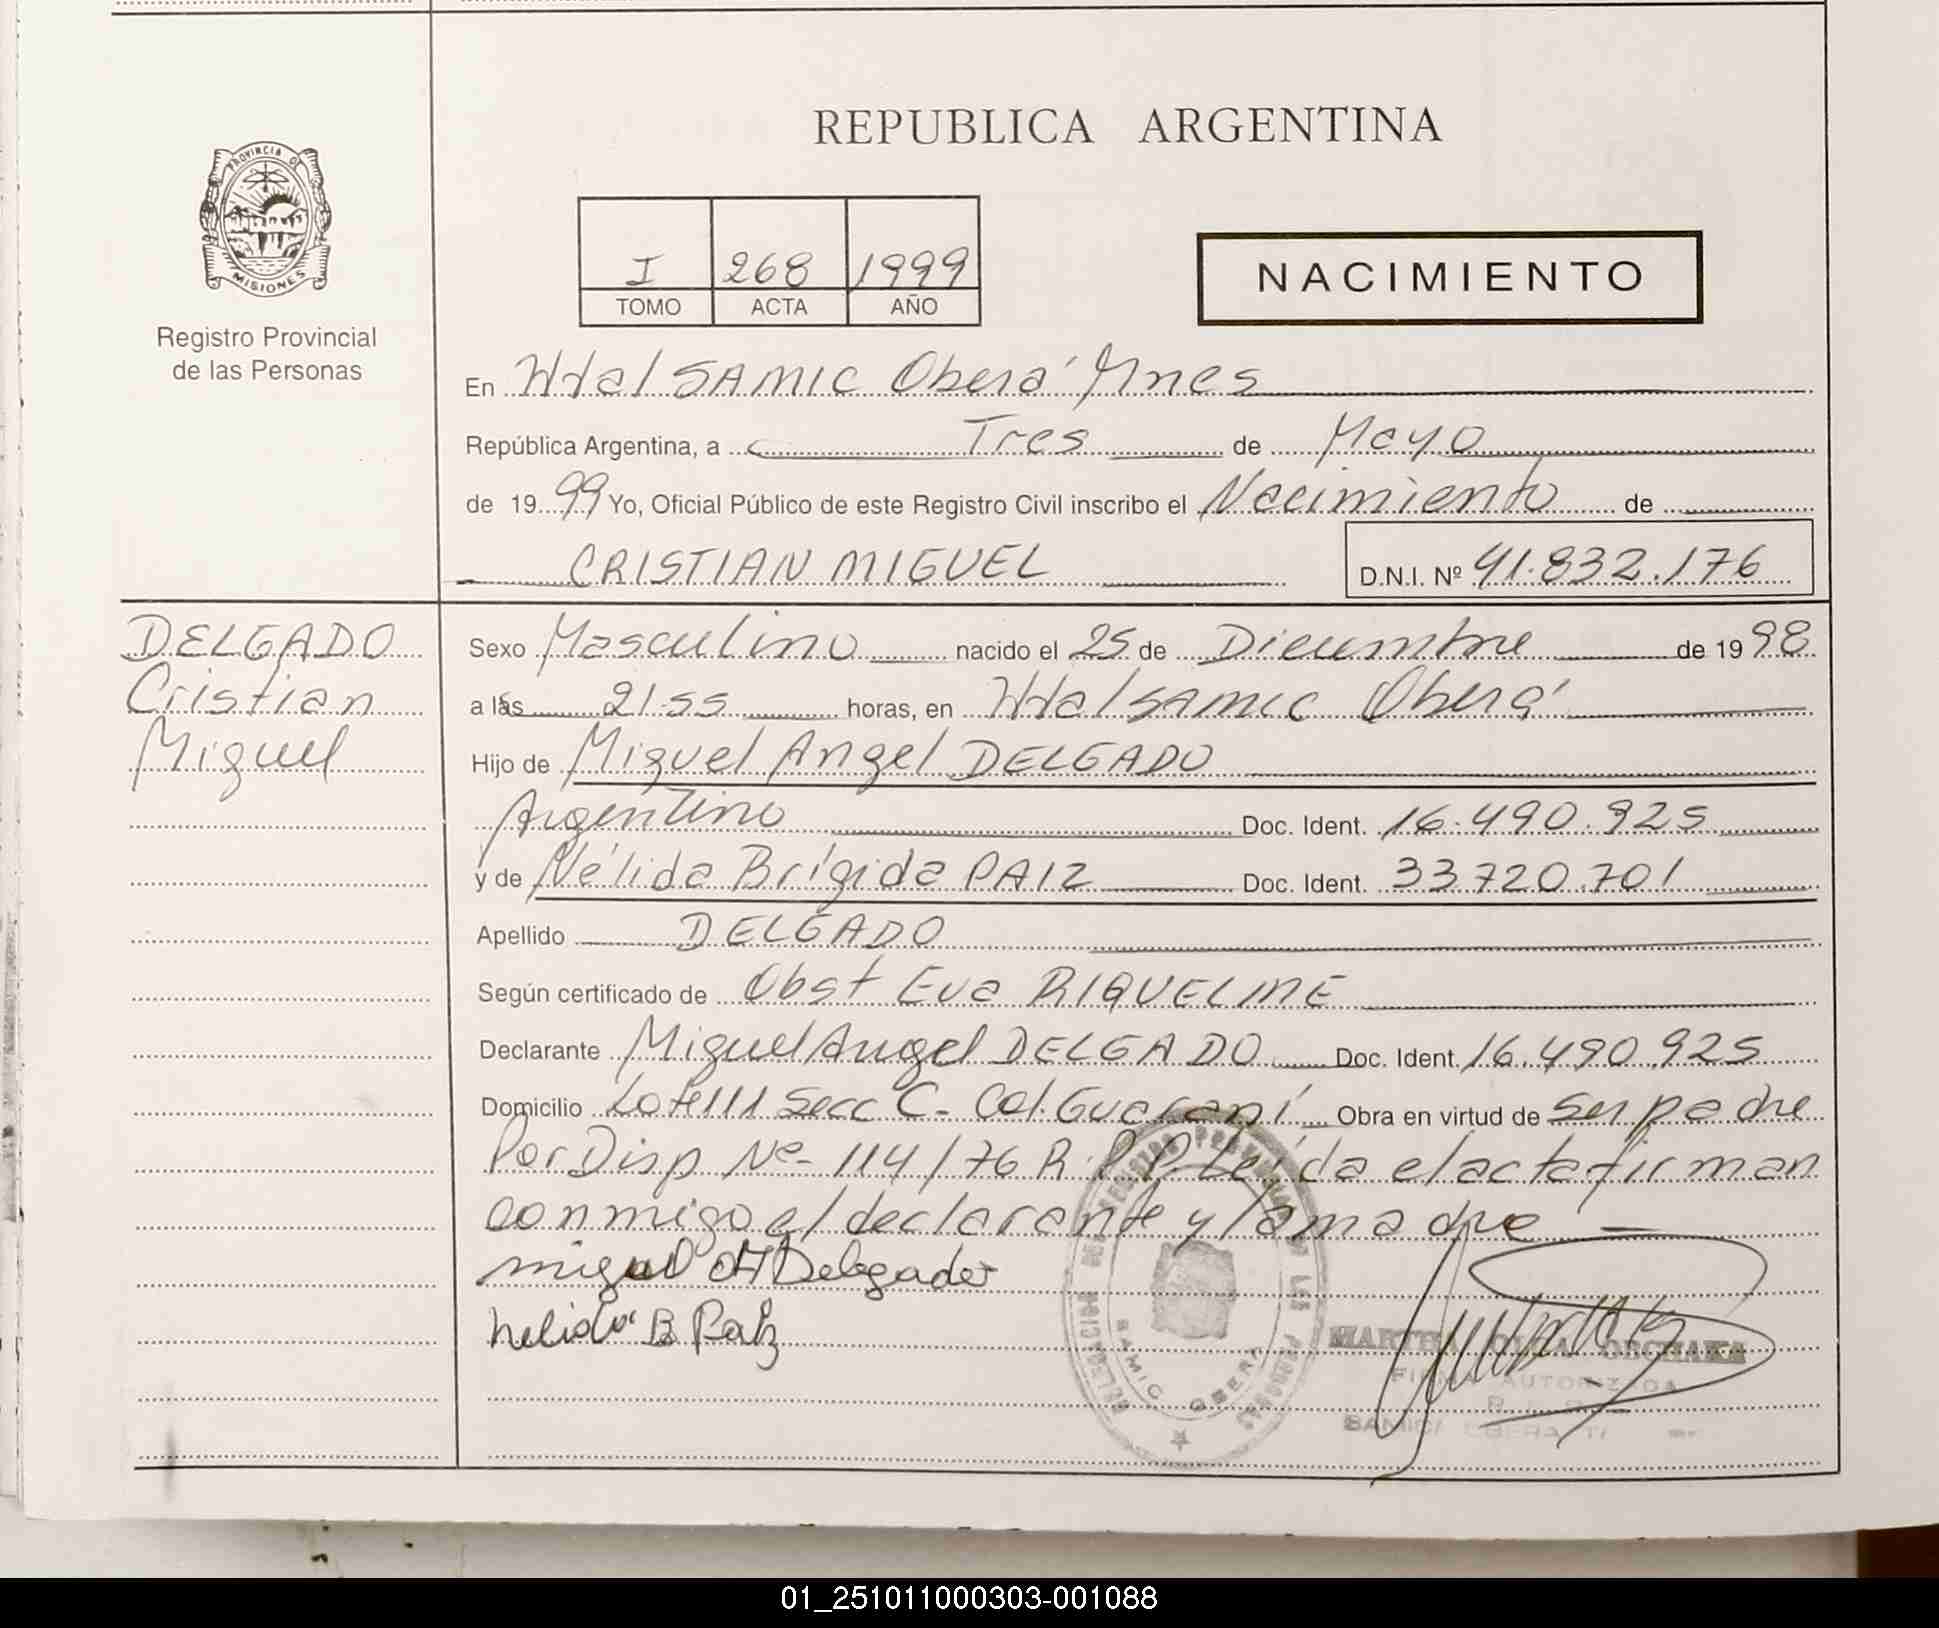 REPUBLICA ARGENTINA
PROVINCIA DE
MISIONES
Registro Provincial
de las Personas
I 268 1999
TOMO ACTA AÑO
NACIMIENTO
En Htal SAMIC Oberá Mnes
República Argentina, a Tres de Mayo
de 1999 Yo, Oficial Público de este Registro Civil inscribo el Nacimiento de
CRISTIAN MIGUEL D.N.I. Nº 41.832.176
DELGADO
Cristian
Miguel
Sexo Masculino nacido el 25 de Diciembre de 1998
a las 21.55 horas, en Htal SAMIC Oberá
Hijo de Miguel Angel DELGADO
Argentino Doc. Ident. 16.490.925
y de Nélida Brígida PAIZ Doc. Ident. 33720.701
Apellido DELGADO
Según certificado de Obst Eva RIQUELME
Declarante Miguel Angel DELGADO Doc. Ident. 16.490.925
Domicilio Lote 111 Secc C- Col. Guaraní Obra en virtud de ser padre
Por Disp Nº- 114/76 R.P.P. Leída el acta firman
conmigo el declarante y la madre
miguel A Delgado
nelida B Paiz
DELEGACION DEL REGISTRO PROVINCIAL DE LAS PERSONAS
SAMIC OBERA
MARTHA OLGA
FIRMA AUTORIZADA
01_251011000303-001088